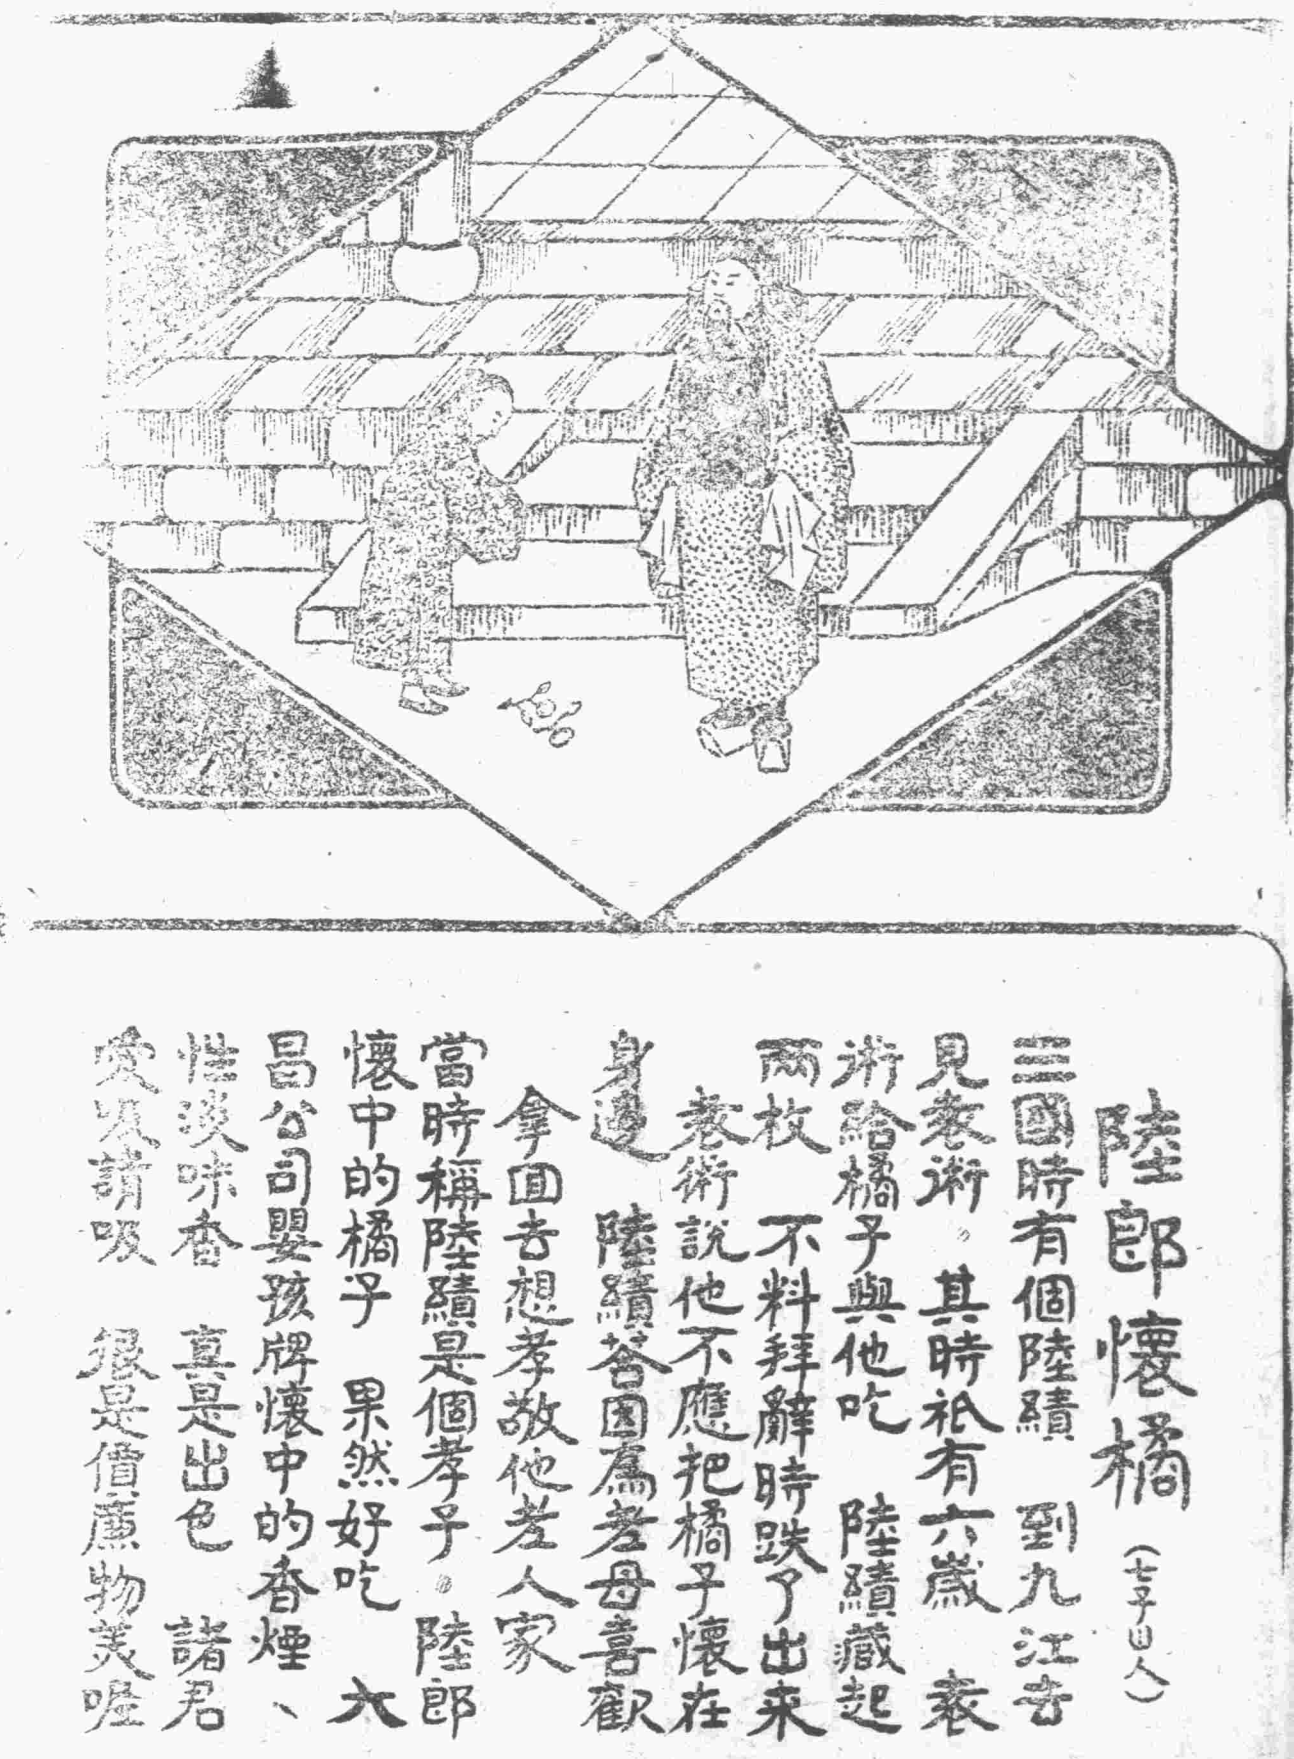 陸郎懷橘
三國時有個陸績　到九江去
見袁術。其時祇有六歲　袁
術給橘子與他吃　陸績藏起
兩枚　不料拜辭時跌了出來
袁術說他不應把橘子懷在
身邊　陸績答因爲老母喜歡
拿回去想孝敬他老人家
當時稱陸績是個孝子。陸郎
懷中的橘子　果然好吃　大
昌公司嬰孩牌懷中的香煙、
性淡味香　真是出色　諸君
愛吸請吸　狠是價廉物美喔